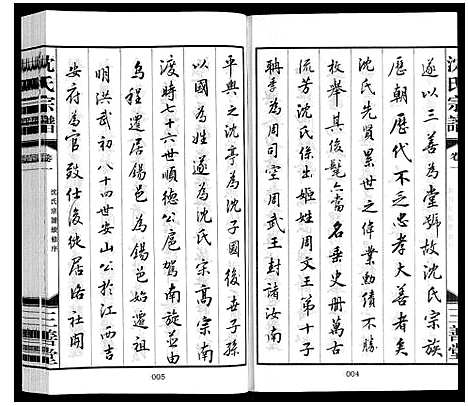 沈氏宗譜
卷一
三善堂
遂以三善為堂號故沈氏宗族
歷朝歷代不乏忠孝大善者矣
沈氏先賢累世之偉業勳績不勝
枚舉其後髦士當名垂史冊萬古
流芳沈氏係出姬姓周文王第十子
聃季為周司空周武王封諸汝南
004
平輿之沈亭為沈子國後世子孫
以國為姓遂為沈氏宋高宗南
渡時七十六世順德公扈駕南旋並由
烏程遷居錫邑為錫邑始遷祖
明洪武初八十四世安山公於江西吉
安府為官致仕後徙居洛社開
005
沈氏宗譜
卷一
沈氏宗譜續修序
三善堂